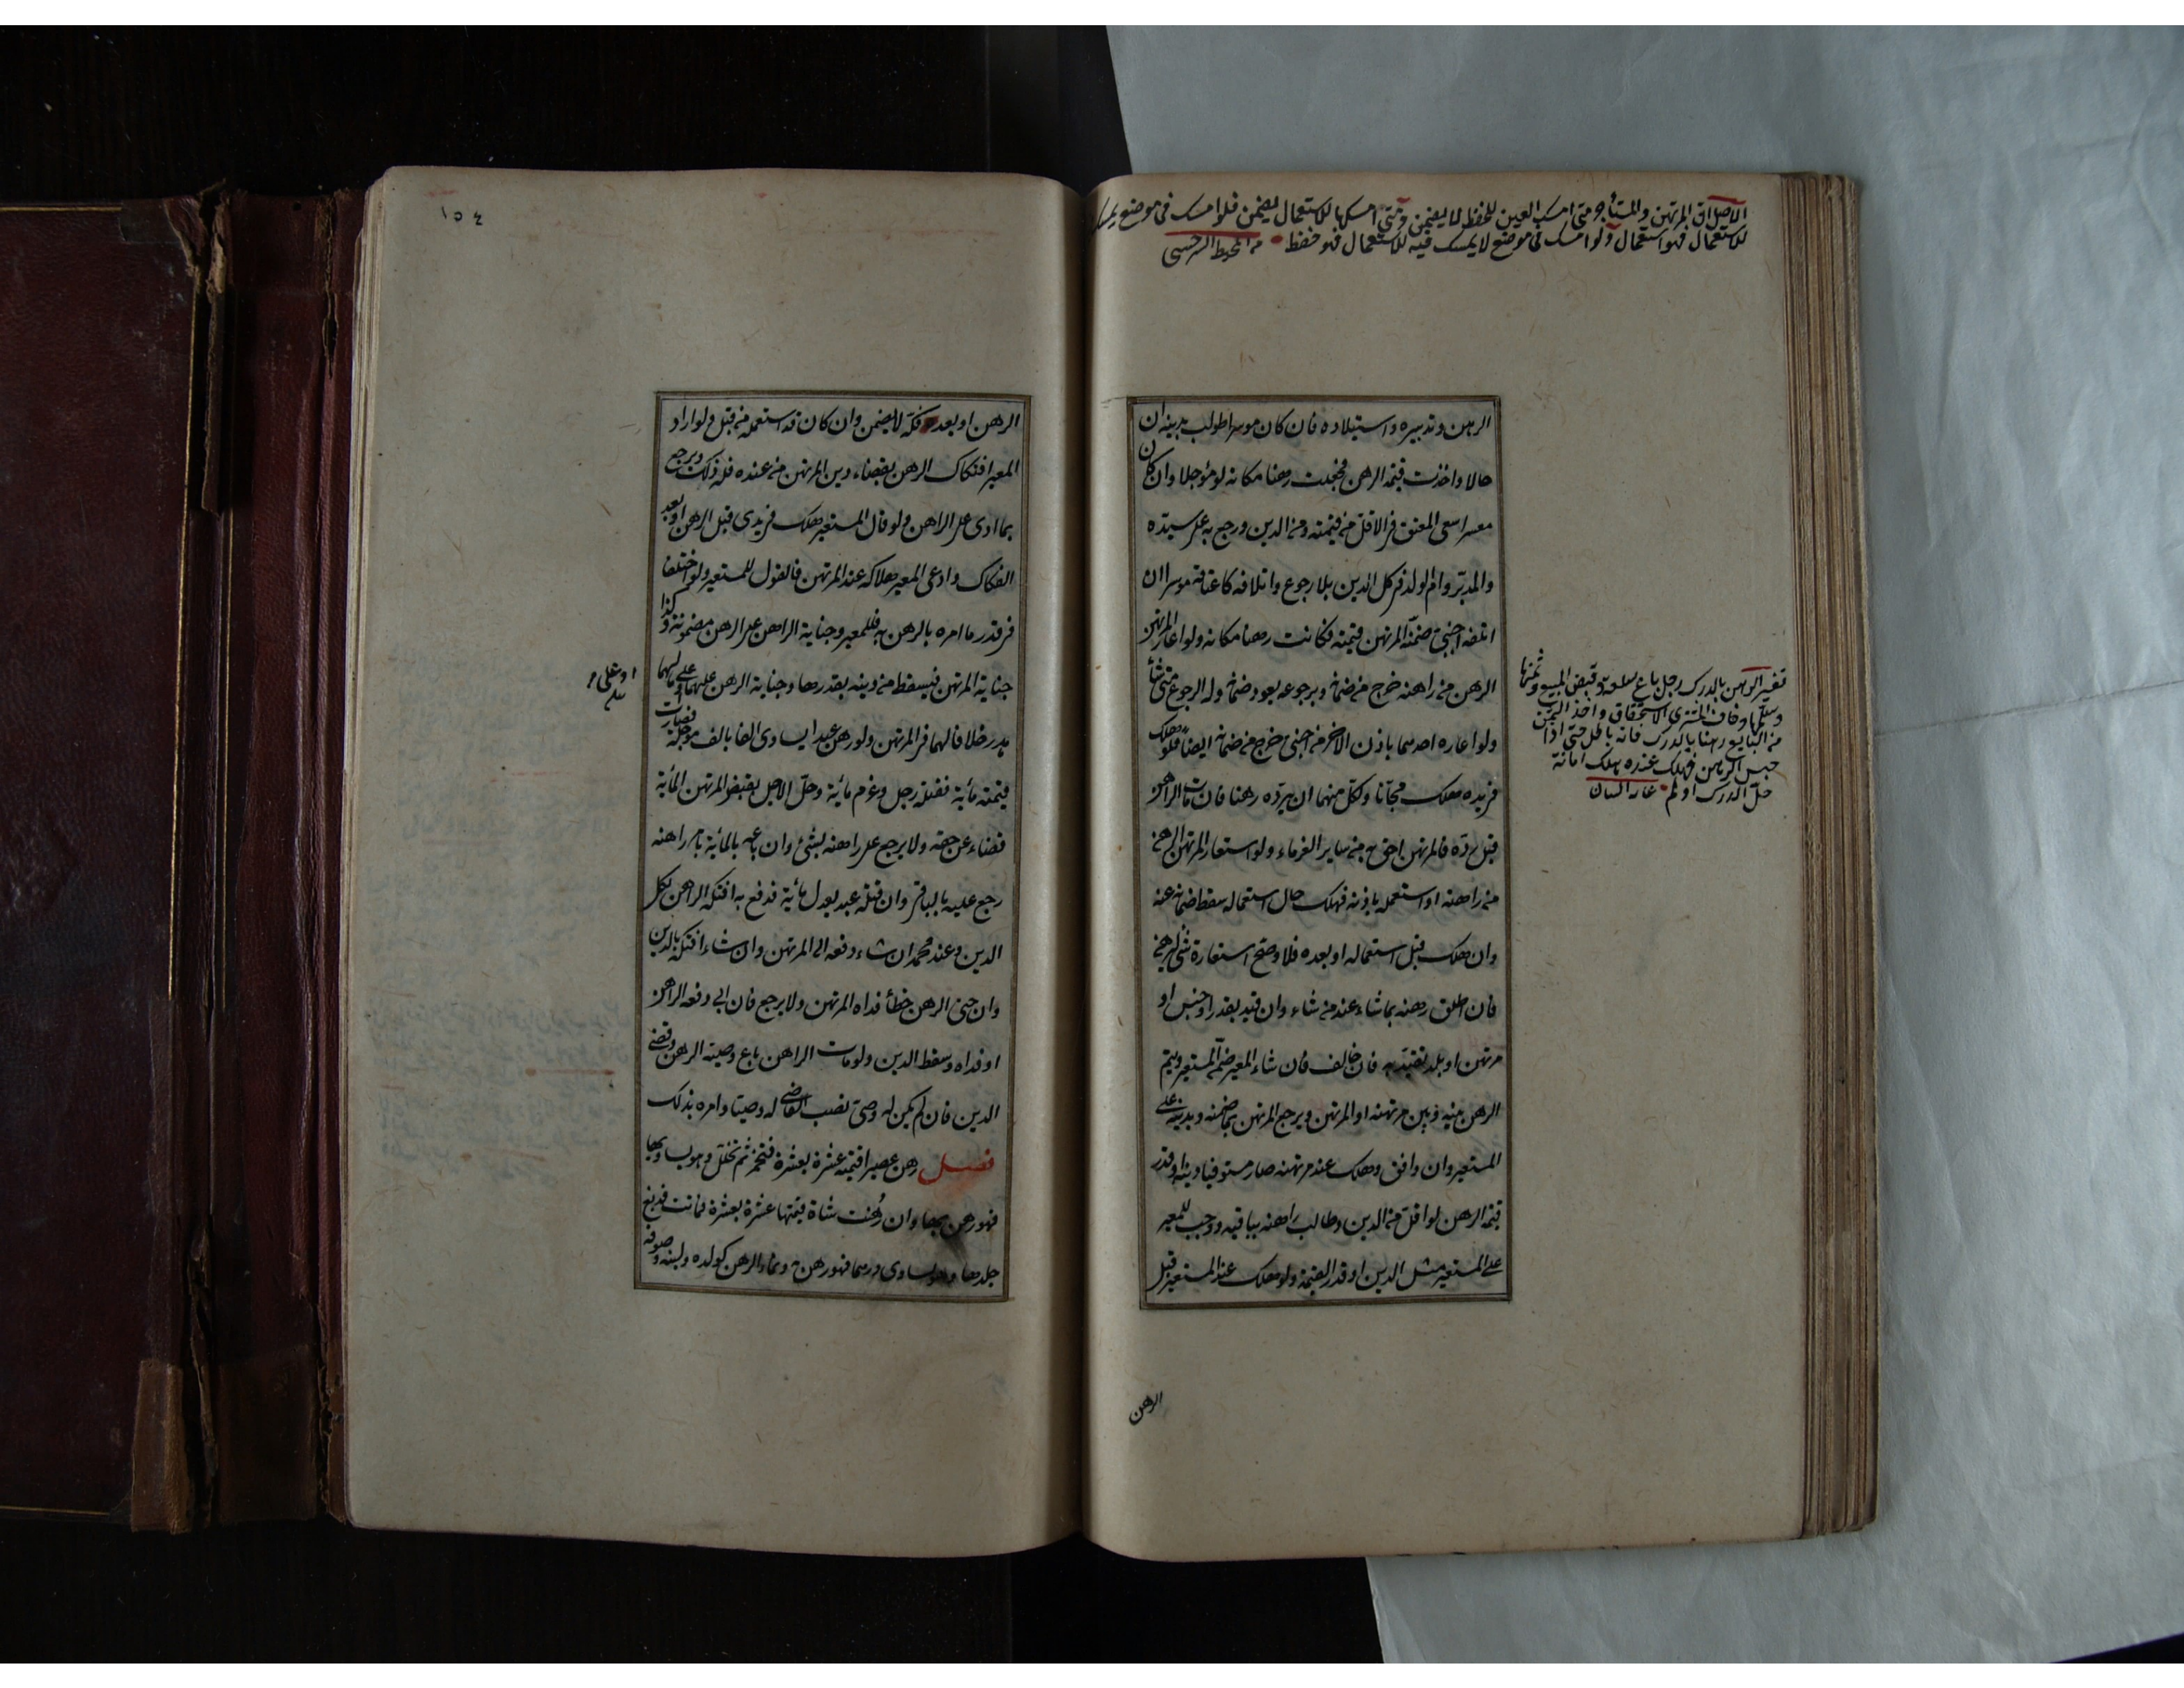 الاصل ان المرتهن والمستأجر متى امسك العين للحفظ لا يضمن ومتى امسكها للاستعمال يضمن فلو امسك فى موضع يمسك
للاستعمال فهو استعمال ولو امسك فى موضع لا يمسك فيه للاستعمال فهو حفظ من المحيط السرخسى
الرهن وتدبيره واستيلاده فان كان موسرا طولب بدينه ان
حالا واخذت قيمة الرهن فجعلت رهنا مكانه لو مؤجلا وان كان
معسرا سعى المعتق فى الاقل من قيمته ومن الدين ورجع به على سيده
والمدبر وام الولد فى كل الدين بلا رجوع واتلافه كاعتاقه موسرا ان
اتلفه اجنبى ضمنه المرتهن قيمته فكانت رهنا مكانه ولو اعار المرتهن
الرهن من راهنه خرج من ضمانه وبرجوعه يعود ضمانه وله الرجوع متى شاء
ولو اعاره احدهما باذن الاخر من اجنبى خرج من ضمانه ايضا فلو هلك
فى يده هلك مجانا ولكل منهما ان يرده رهنا فان مات الراهن
قبل رده فالمرتهن احق به من سائر الغرماء ولو استعار المرتهن الرهن
من راهنه او استعمله باذنه فهلك حال استعماله سقط ضمانه عنه
وان هلك قبل استعماله او بعده فلا وصح استعارة شئ ليرهنه
فان اطلق رهنه بما شاء عند من شاء وان قيد بقدر او جنس او
مرتهن او بلد تقيد به فان خالف فان شاء المعير ضمن المستعير ويتم
الرهن بينه وبين مرتهنه او المرتهن ويرجع المرتهن بما ضمنه وبدينه على
المستعير وان وافق وهلك عند مرتهنه صار مستوفيا دينه او قدر
قيمة الرهن لو اقل من الدين وطالب راهنه بباقيه ووجب للمعير
على المستعير مثل الدين او قدر القيمة ولو هلك عند المستعير قبل
تفسير الرهن بالدرك رجل باع سلعة وقبض المبيع وثمنها
وسلمها وخاف المشترى الاستحقاق واخذ الثمن
من البايع رهنا بالدرك فانه باطل حتى اذا
حبس الرهن فهلك عنده يهلك امانة
حل الدرك او لم
الرهن
١٥٤
الرهن او بعد فكه لا يضمن وان كان قد استعمله من قبل ولو اراد
المعير افتكاك الرهن بقضاء دين المرتهن من عنده فله ذلك ويرجع
بما ادى على الراهن ولو قال المستعير هلك فى يدى قبل الرهن او بعد
الفكاك وادعى المعير هلاكه عند المرتهن فالقول للمستعير ولو اختلفا
فى قدر ما امره بالرهن به فللمعير وجناية الراهن على الرهن مضمونة وكذا
جناية المرتهن فيسقط من دينه بقدرها وجناية الرهن عليهما وعلى مالهما
هدر خلافا لهما فى المرتهن ولو رهن عبدا يساوى الفا بالف مؤجلة فصارت
قيمته مائة فقتله رجل وغرم مائة وحل الاجل يقبض المرتهن المائة
قضاء عن حقه ولا يرجع على راهنه بشئ وان باعه بالمائة بامر راهنه
رجع عليه بالباقى وان قتله عبد يعدل مائة فدفع به افتكه الراهن بكل
الدين وعند محمد ان شاء دفعه الى المرتهن وان شاء افتكه بالدين
وان جنى الرهن خطأ فداه المرتهن ولا يرجع فان ابى دفعه الراهن
او فداه وسقط الدين ولو مات الراهن باع وصيه الرهن وقضى
الدين فان لم يكن له وصى نصب القاضى له وصيا وامره بذلك
فصل رهن عصيرا قيمته عشرة بعشرة فتخمر ثم تخلل وهو يساويها
فهو رهن بها وان رهنت شاة قيمتها عشرة بعشرة فماتت فدبغ
جلدها وهو يساوى درهما فهو رهن به ونماء الرهن كولده ولبنه وصوفه
او على